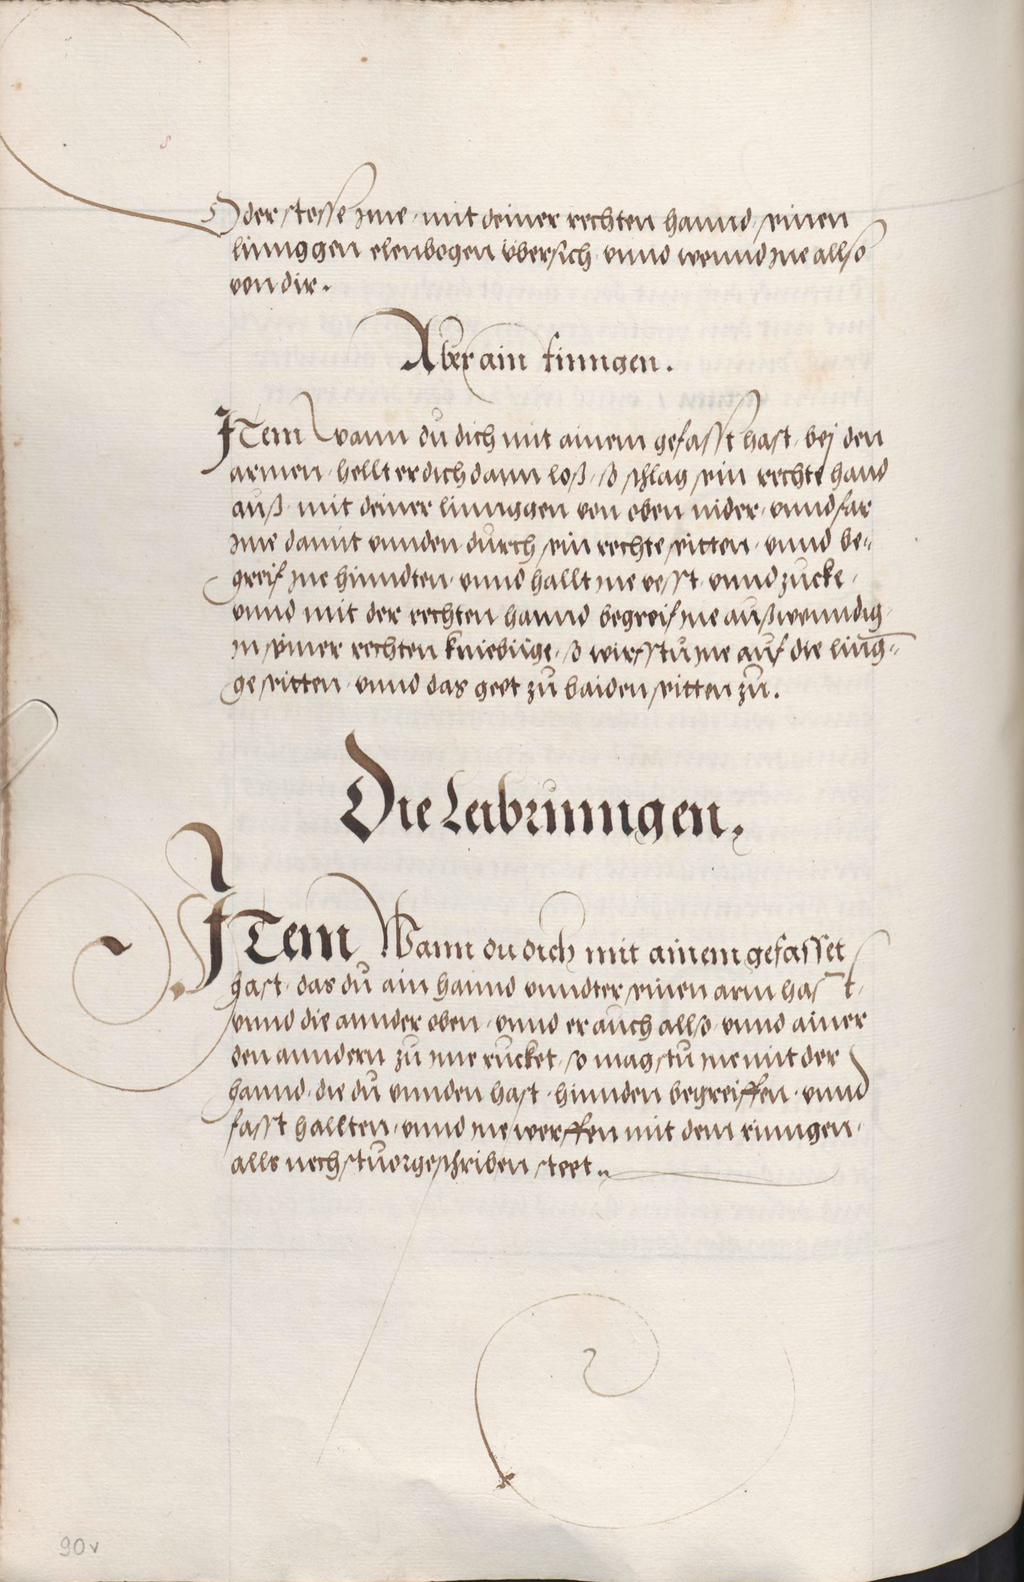 Oder stosse jme mit deiner rechten hannd seinen
linnggen elenbogen übersich vnnd wennd jne allso
von dir.
Aber ain rinngen.
ITem wann du dich mit ainem gefasst hast bej den
armen hellt er dich dann loß so schlag sein rechte hand
auß mit deiner linnggen von oben nider vnnd far
jme damit vnnden durch sein rechte seitten vnnd be=
greif jne hinndten vnnd hallt jne vesst vnnd zucke
vnnd mit der rechten hannd begreif jne außwenndig
in seiner rechten kniebüge so wirfstu jne auf die ling=
ge seitten vnnd das geet zu baiden seitten zu.
Die Leibrinngen.
ITem Wann du dich mit ainem gefasset
hast das du ain hannd vnndter seinen arm hast
vnnd die annder oben vnnd er auch allso vnnd ainer
den anndern zu jme rucket so magstu jne mit der
hannd die du vnnden hast hinnden begreiffen vnnd
fasst hallten vnnd jne werffen mit dem rinngen
alls nechstuorgeschriben steet.
90v